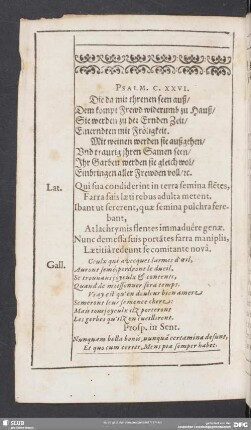 PSALM. C. XXVI.
Die da mit threnen seen auß/
Dem kompt Frewd widerumb zu Hauß/
Sie werden zu der Ernden Zeit/
Einerndten mit Frölichkeit.
Mit weinen werden sie außgehen/
Vnd traurig ihren Samen seen/
Ihr Garben werden sie gleich wol/
Einbringen aller Frewden voll/ꝛc.
Lat. Qui sua condiderint in terra semina flētes,
Farra suis læti rebus adulta metent.
Ibant ut sererent, quæ semina pulchra ferebant,
At lachrymis flentes immaduêre genæ.
Nunc demessa suis portātes farra maniplis,
Lætitiâ redeunt se comitante novâ.
Gall. Ceulx qui avecques larmes d'œil,
Auront semé,
Et contents,
Quand de moissonner sera temps.
en douleur bien amere
Semeront leur semence chere,
Mais tous joyeulx ilz porteront
Les gerbes qu'ilz en cueilleront.
Prosp. in Sent.
Nunquam bella bonis, nunquā certamina desunt,
Et quo cum certet, Mens pia semper habet.
SLUB
DFG